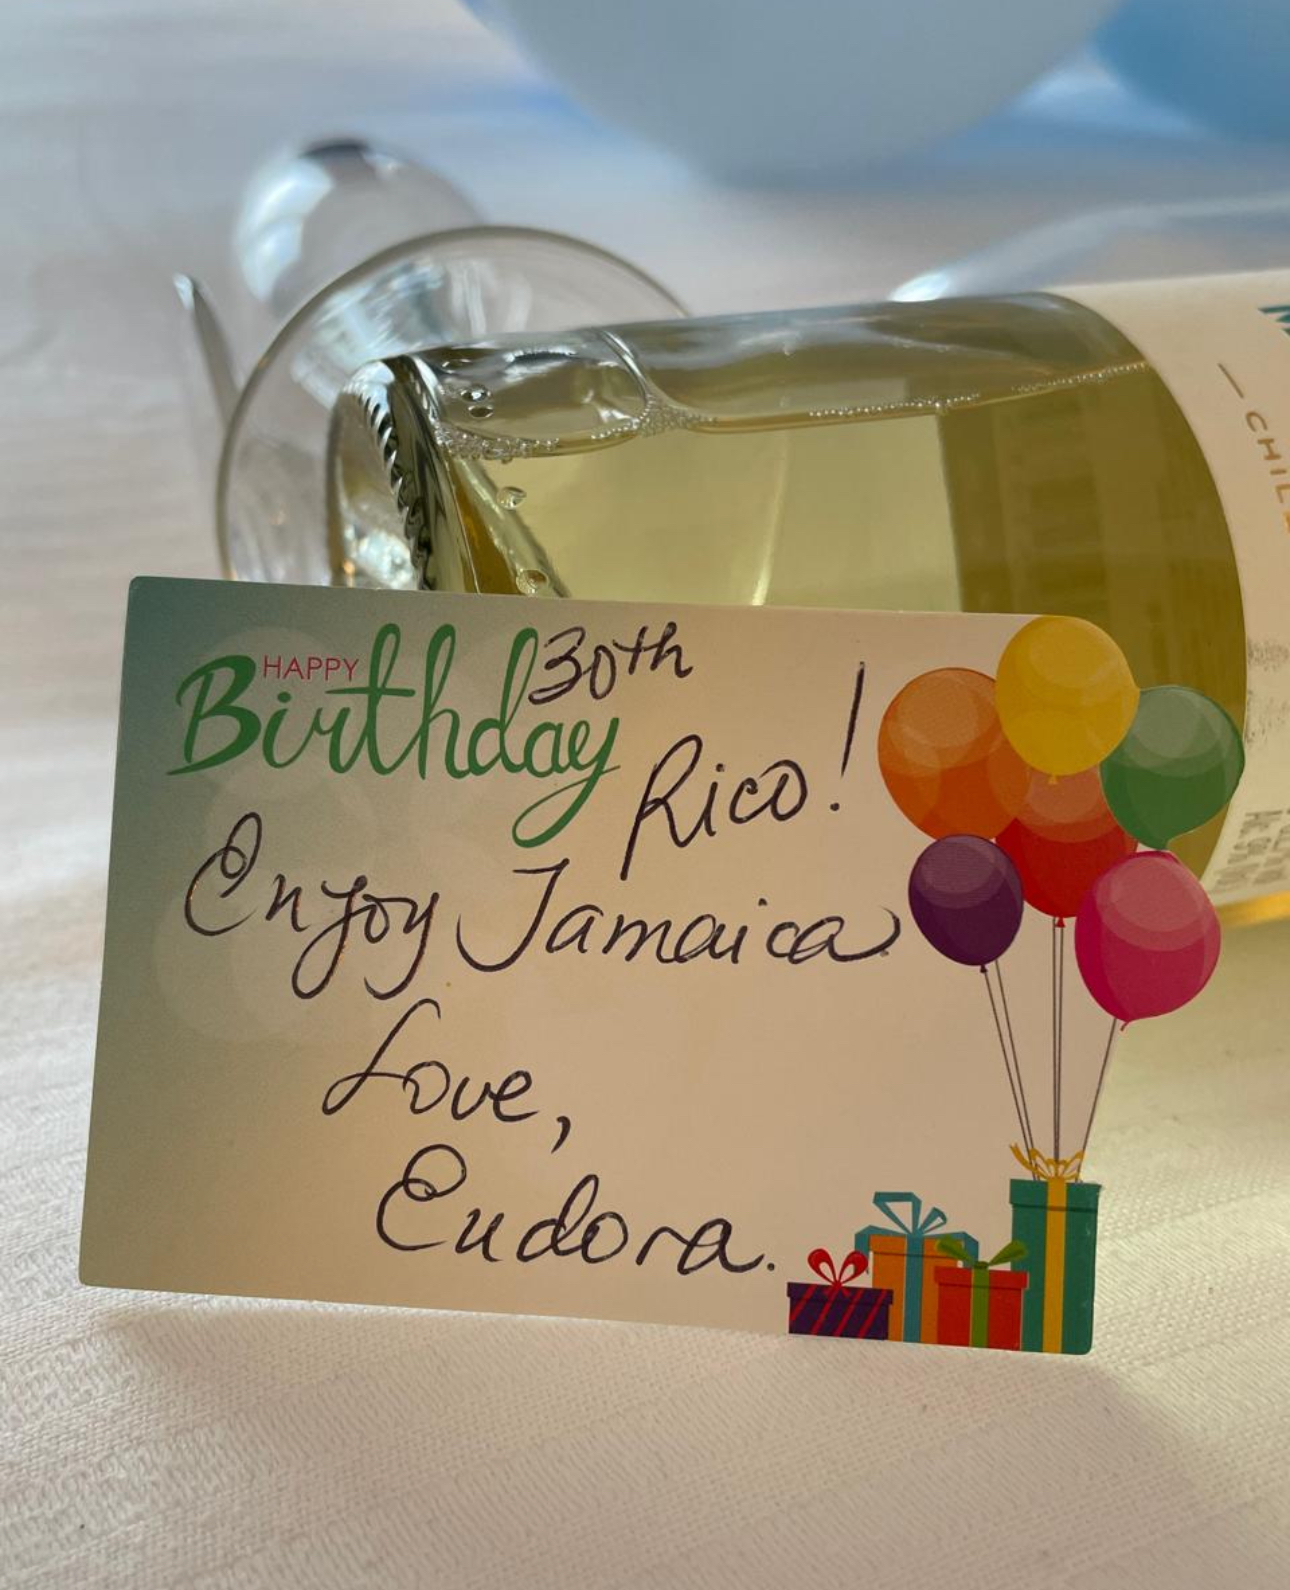 HAPPY
Birthday 30th
Rico!
Enjoy Jamaica.
Love,
Eudora.